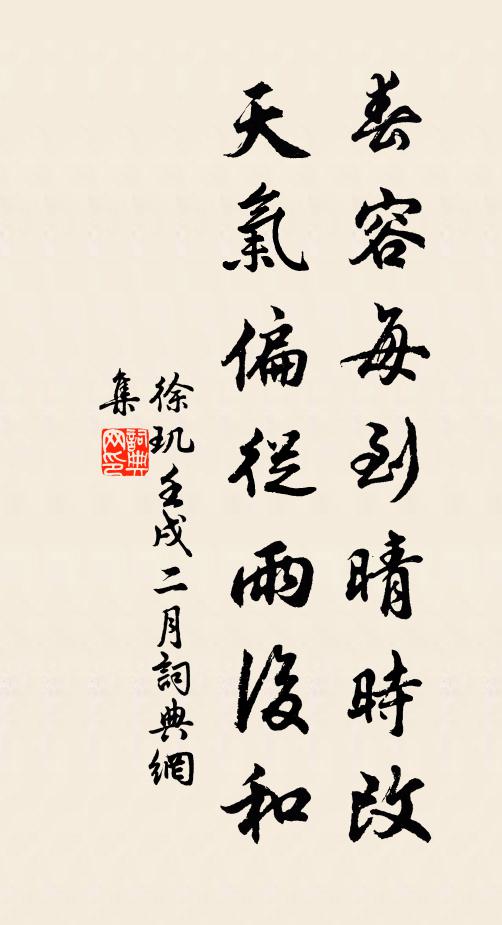 春容每到晴時改
天氣偏從雨後和
徐玑壬戌二月詞典網
集
詞典网印